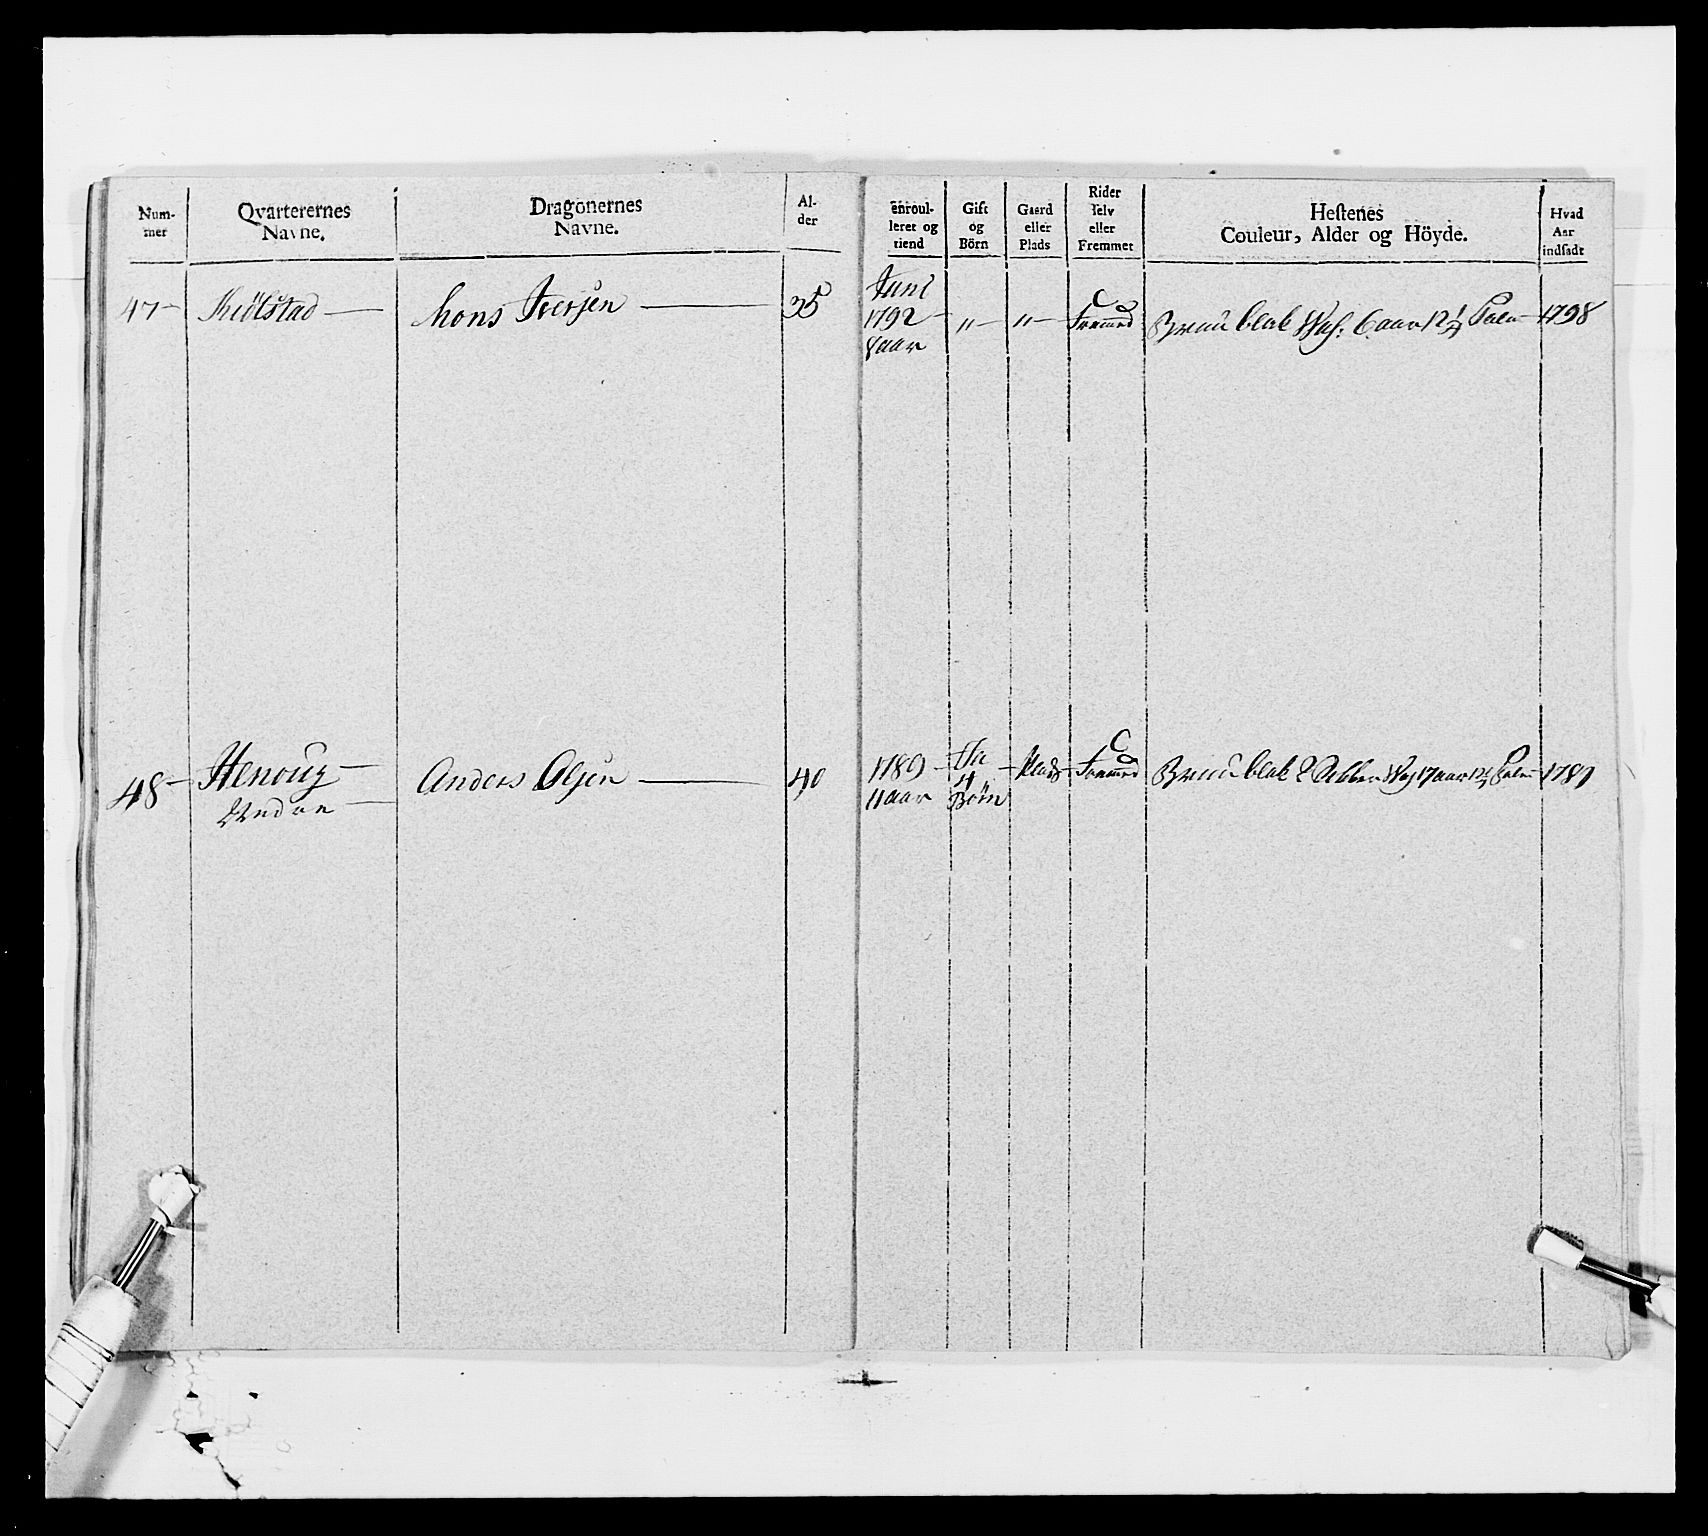 Num-
mer
Qvarterernes
Navne.
Dragonernes
Navne.
Al-
der
enroul-
leret og
tiend
Gift
og
Börn
Gaard
eller
Plads
Rider
selv
eller
Fremmet
Hestenes
Couleur, Alder og Höyde.
Hvad
Aar
indsadt
47 Kiölstad Mons Iversen 35
Juni
1792
8 aar
" " Fremed Bruun blak 6 aar 12 1/4 Palm 1798
48 Henoug
Nedre
Anders Olsen 40
1789
11 aar
Ja
4
Börn
Plads Fremed Bruun blak 17 aar 12 1/4 Palm 1789